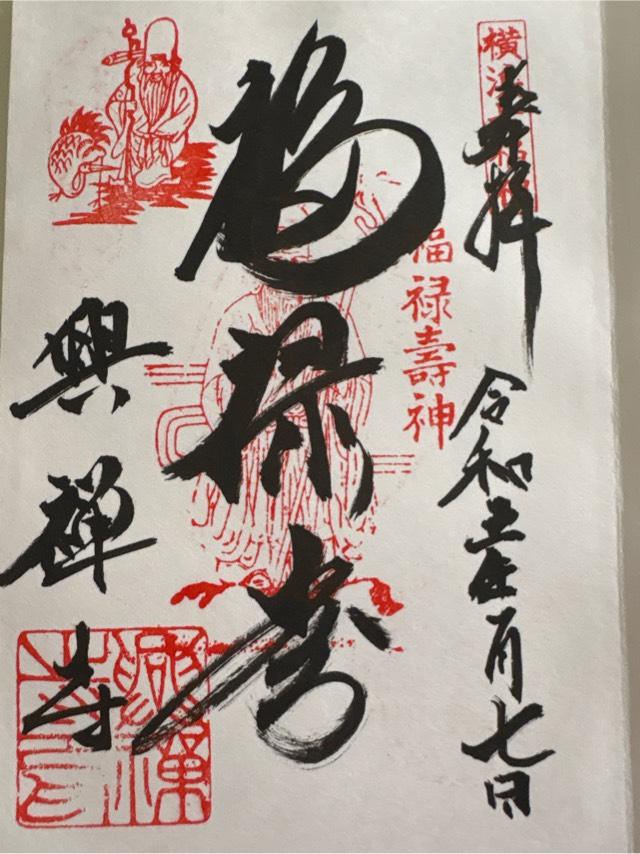 横浜七福神
奉拝
令和五年一月七日
福禄壽神
福禄寿
興禅寺